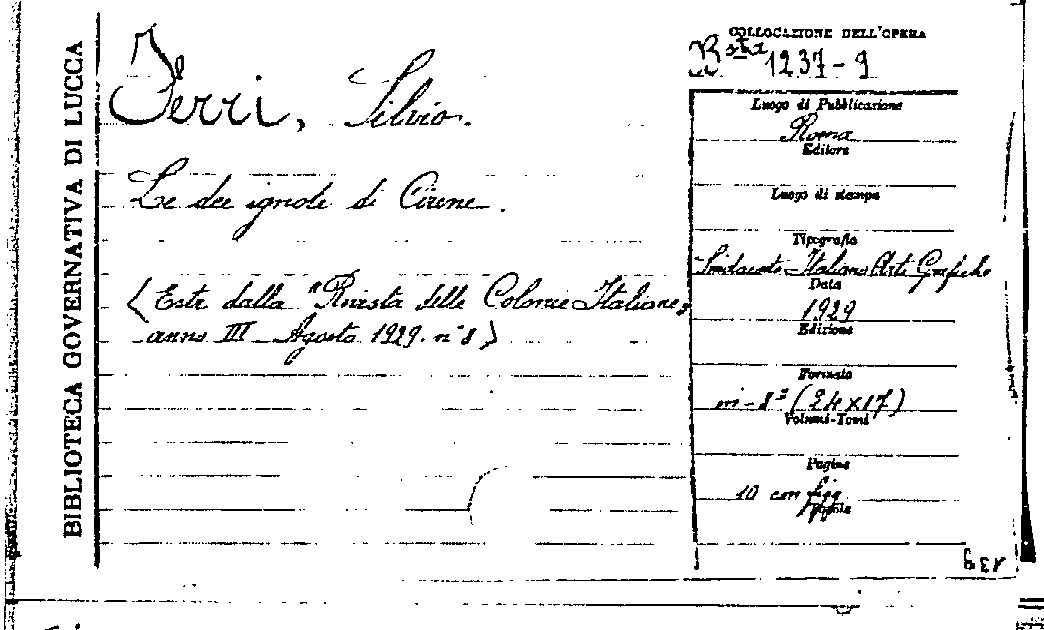 BIBLIOTECA GOVERNATIVA DI LUCCA
Ferri, Silvio.
Le dee ignote di Cirene.
(Estr. dalla "Rivista delle Colonie Italiane,,
anno III - Agosto 1929. n° 8)
COLLOCAZIONE DELL'OPERA
Bsta 1237-9
Luogo di Pubblicazione
Roma
Editore
Luogo di stampa
Tipografia
Sindacato Italiano Arti Grafiche
Data
1929
Edizione
Formato
in-8° (24x17)
Volumi-Tomi
Pagine
10 con figg.